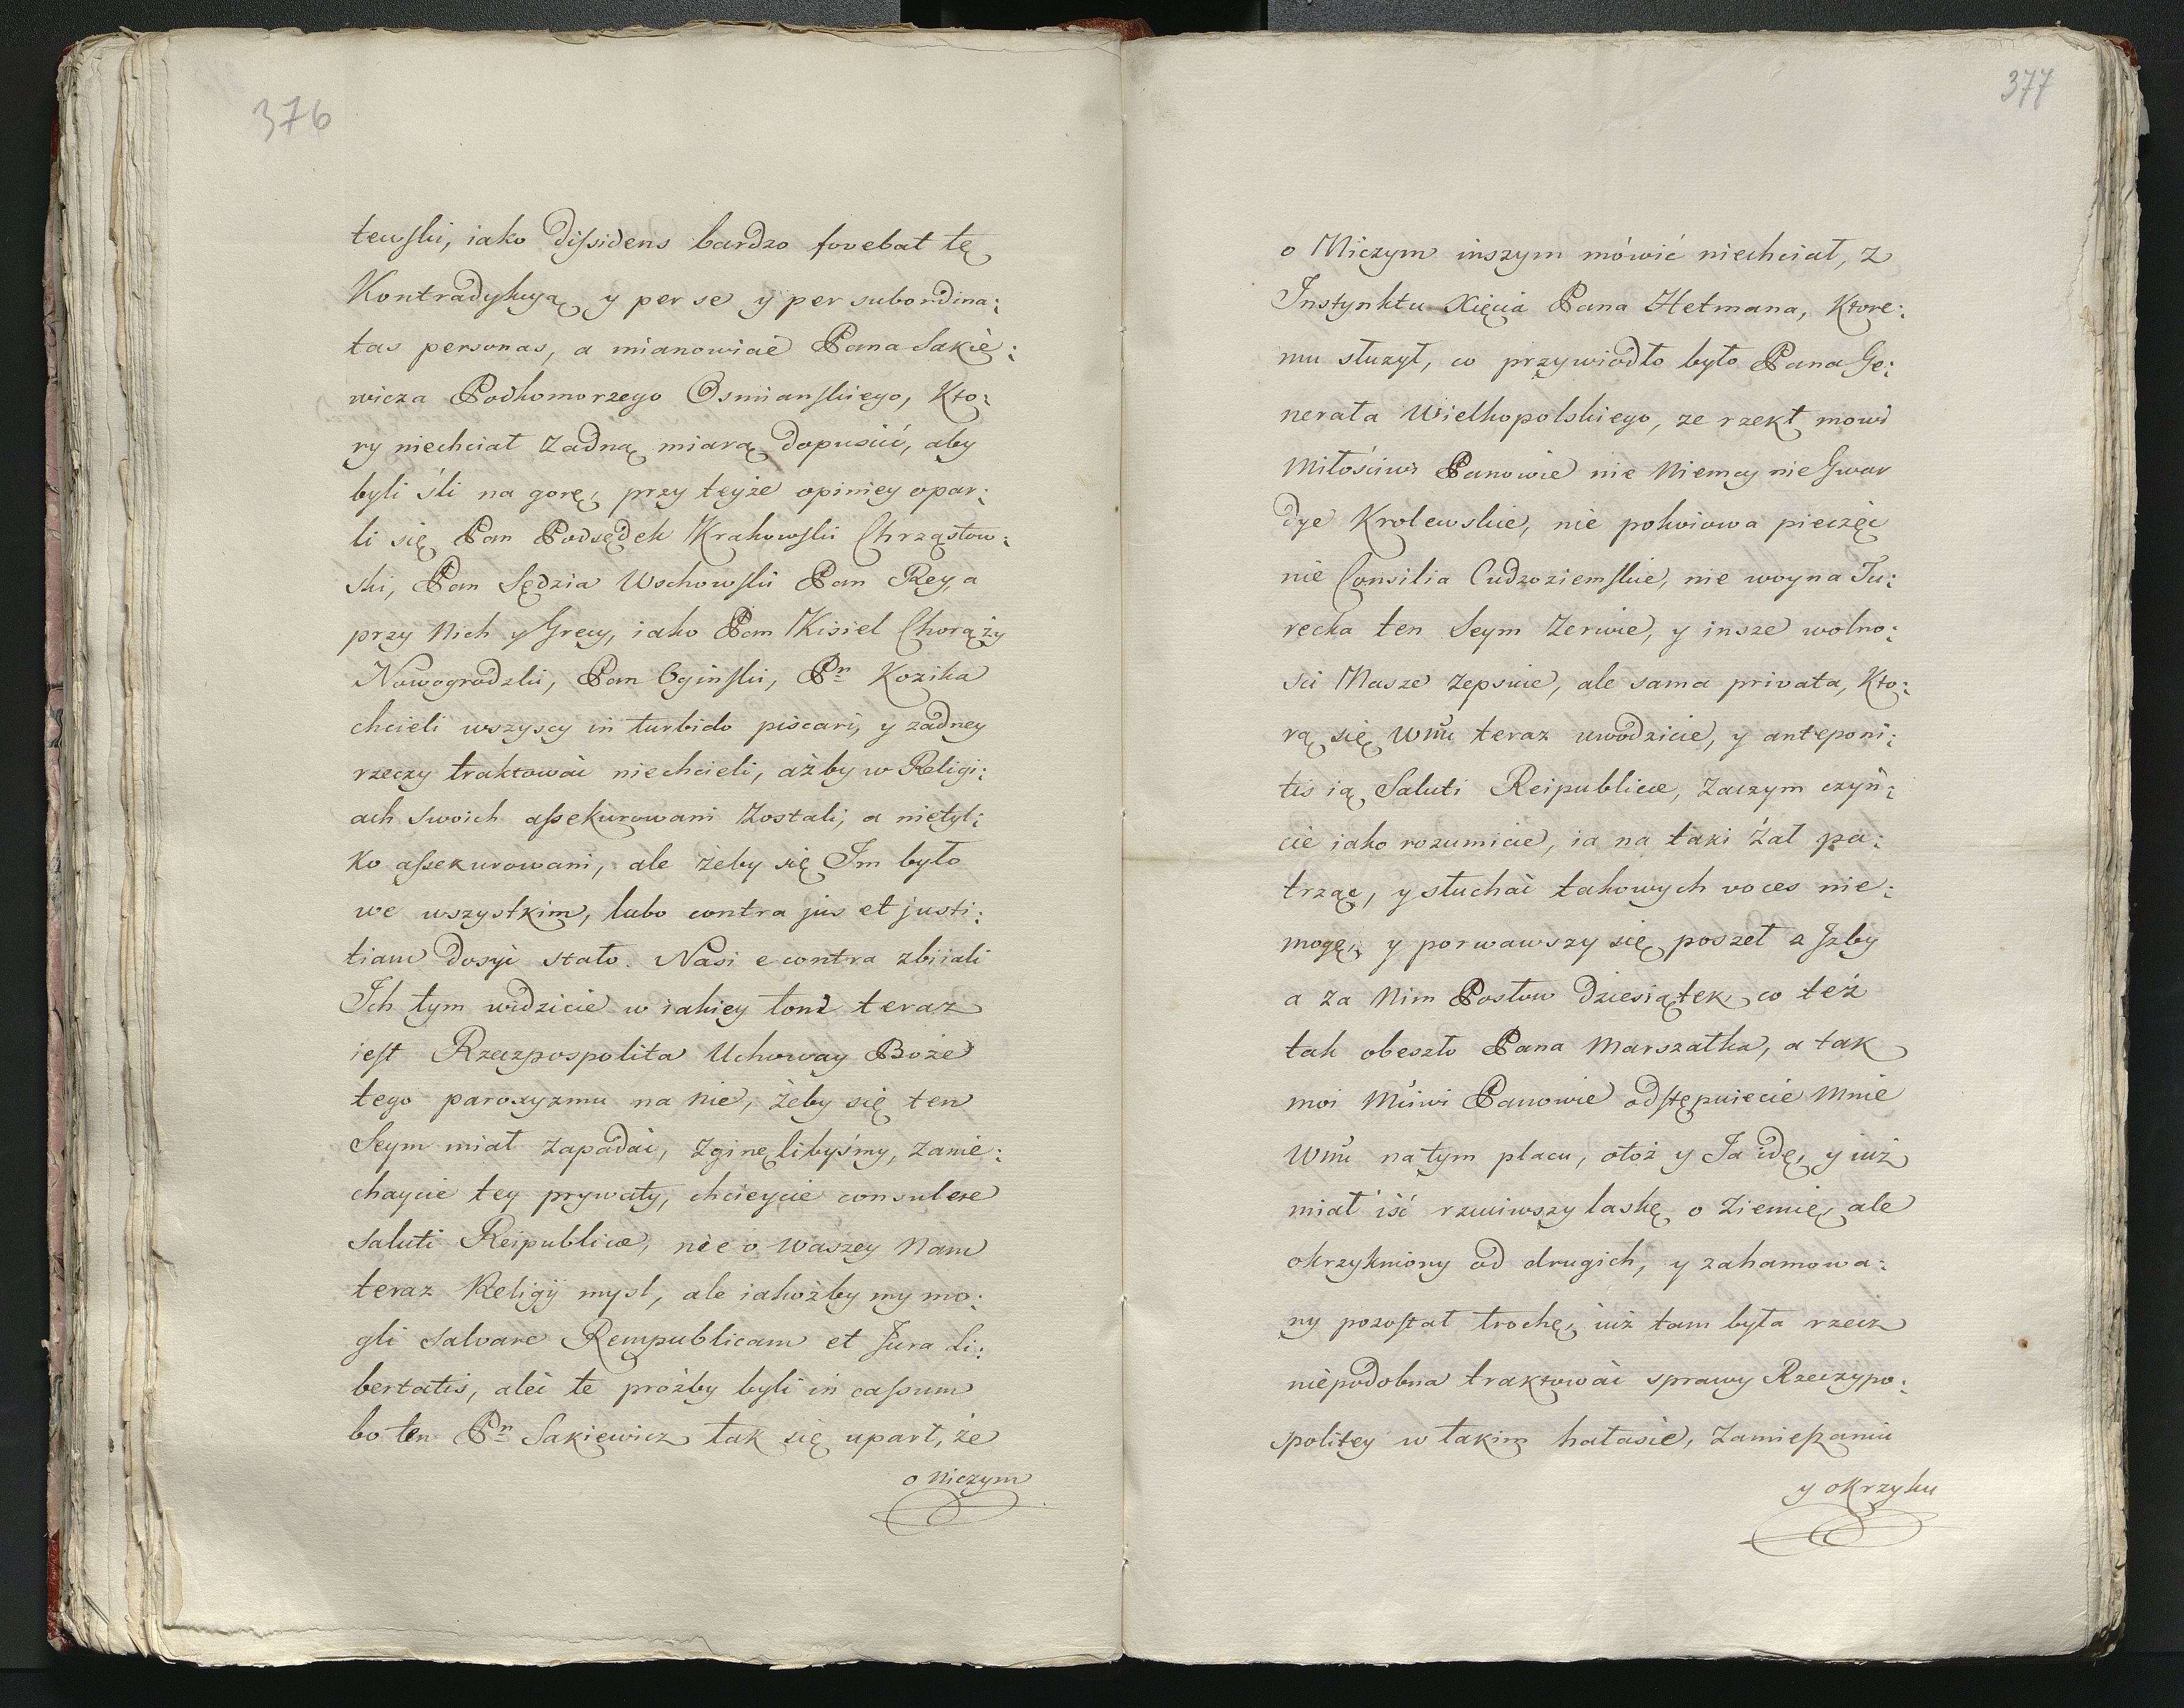 376
tewski, iako dissidens bardzo fovebat tę
Kontradykcyą y per se y per subordina:
tas personas, a mianowicie Pana Sakie:
wicza Podkomorzego Osmianskiego, Kto:
ry niechciał żadną miarą dopuścić, aby
byli śli na gorę, przy teyże opiniey opar:
li się Pan Podsędek Krakowski Chrząstow:
ski, Pan Sędzia Wschowski Pan Rey, a
przy Nich y Grecy, iako Pan Kisiel Chorąży
Nowogrodzki, Pan Oginski, Pn Kozika
chcieli wszyscy in turbido piscari, y żadney
rzeczy traktować niechcieli, ażby w Religi:
ach swoich assekurowani Zostali, a nietyl:
ko assekurowani, ale żeby się Im było
we wszystkim, lubo contra jus et justi:
tiam dosyć stało. Nasi e contra zbiiali
Ich tym widzicie w iakiey toni teraz
iest Rzeczpospolita Uchoway Boże
tego paroxyzmu na nie, żeby się ten
Seym miał zapadać, zginęlibyśmy, zanie:
chaycie tey prywaty, chcieycie consulere
saluti Reipublicæ, nie o waszey Nam
teraz Religij mysl, ale iakożby my mo:
gli salvare Rempublicam et Jura Li:
bertatis, aleć te prożby byli in cassum
bo ten Pn Sakiewicz tak się uparł, że
o niczym
377
o Niczym inszym mówić niechciał, z
Instynktu Xięcia Pana Hetmana, Ktore:
mu służył, co przywiodło było Pana Ge:
nerała Wielkopolskiego, ze rzekł mowi
Miłościwi Panowie nie Niemcy nie Gwar
dye Krolewskie, nie pokoiowa pieczęc
nie Consilia Cudzoziemskie, nie woyna Tu:
recka ten Seym Zerwie, y insze wolno:
sci Nasze zepsuie, ale sama privata, Kto:
rą się Wm teraz uwodzicie, y anteponi:
tis ią Saluti Reipublicæ, Zaczym czyń:
cie iako rozumicie, ia na taki żal pa:
trząc, y słuchać takowych voces nie:
mogę, y porwawszy się poszeł z Izby
a za Nim Posłow dziesiątek, co też
tak obeszło Pana Marszałka, a tak
moi Mciwi Panowie odstępuiecie Mnie
Wm na tym placu, otoż y Ja idę, y iuż
miał iść rzuciwszy laskę o Ziemię, ale
okrzykniony od drugich, y zahamowa:
ny pozostał trochę, iuż tam była rzecz
niepodobna traktować sprawy Rzeczypo:
spolitey w takim hałasie, Zamieszaniu
y okrzyku